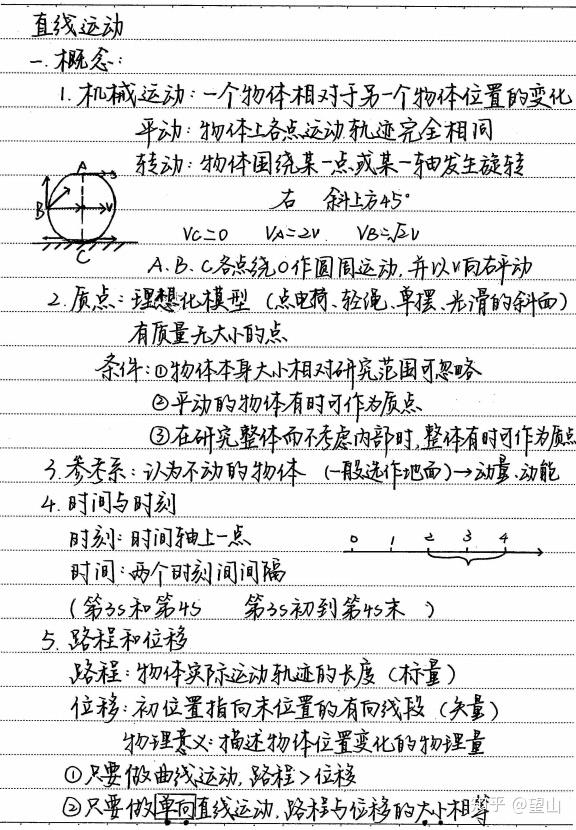 直线运动
一.概念:
1.机械运动:一个物体相对于另一个物体位置的变化
平动:物体上各点运动轨迹完全相同
转动:物体围绕某一点或某一轴发生旋转
A
B
V
C
右 斜上方45°
Vc=0 VA=2V VB=√2V
A.B.C各点绕O作圆周运动,并以V向右平动
2.质点:理想化模型(点电荷、轻绳、单摆、光滑的斜面)
有质量无大小的点
条件:①物体本身大小相对研究范围可忽略
②平动的物体有时可作为质点
③在研究整体而不考虑内部时,整体有时可作为质点
3.参考系:认为不动的物体 (一般选作地面)→动量、动能
4.时间与时刻
时刻:时间轴上一点
0 1 2 3 4
时间:两个时刻间间隔
(第3s和第4s 第3s初到第4s末 )
5.路程和位移
路程:物体实际运动轨迹的长度(标量)
位移:初位置指向末位置的有向线段(矢量)
物理意义:描述物体位置变化的物理量
①只要做曲线运动,路程>位移
②只要做单向直线运动,路程与位移的大小相等
知乎 @望山